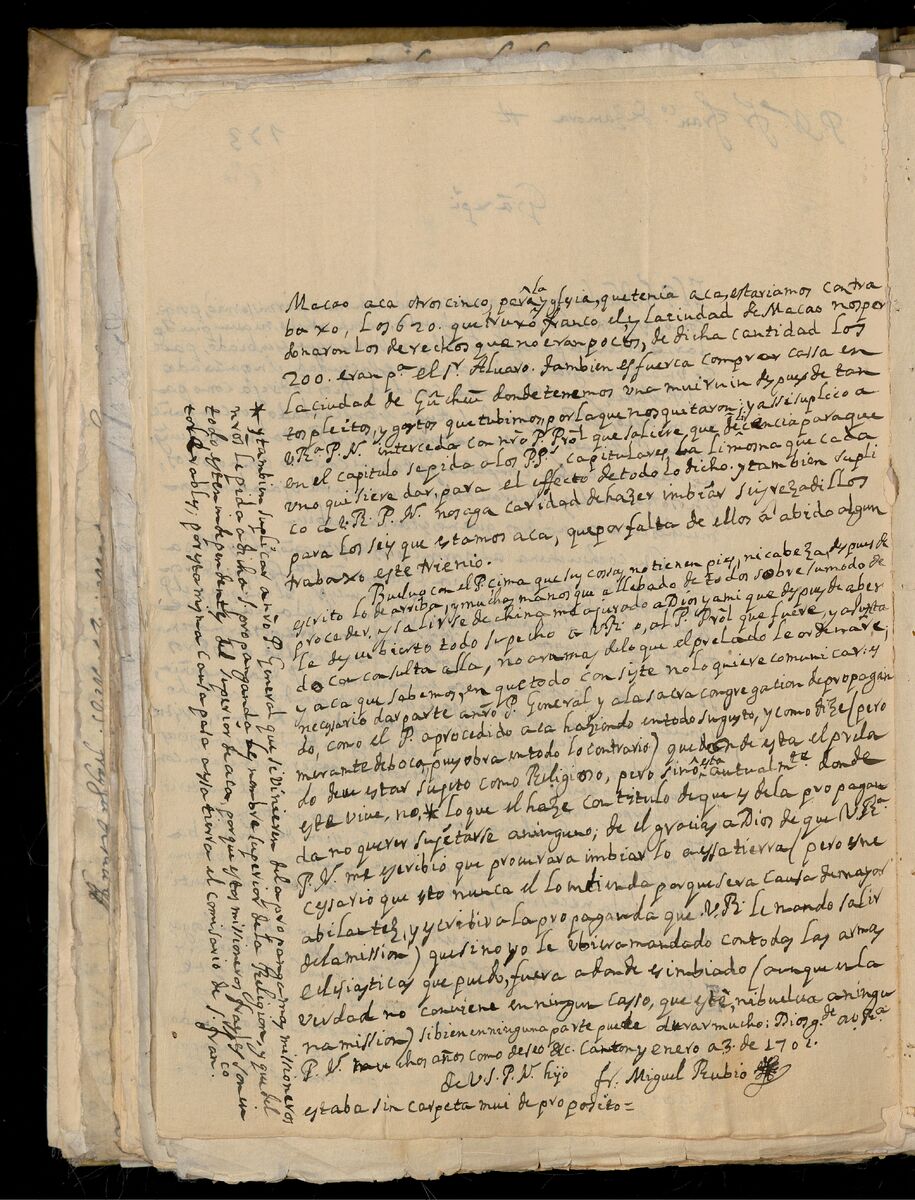 Macao aca otros cinco, para la yglesia, que tenia aca, estariamos contra
baxo, Los 620. que truxo franco, el, y la ciudad de Macao nos per
donaron los derechos que no eran pocos, de dicha cantidad Los
200. eran pª el Sr Alvaro. tambien es fuerca comprar cassa en
La ciudad de donde tenemos una mui ruin despues de tan
tos pleitos, y gastos que tubimos por la que nos quitaron; y assi suplico a
V Rª P. N. interceda con nro P. Prol que saliere, que dé licencia para que
en el capitulo se pida a los PPs capitulares, la limosna que cada
uno quisiere dar, para el effecto de todo lo dicho. y tambien supli
co á V. R. P. N. nos aga caridad de hazer imbiar seis rezadillos
para los seis que estamos aca, que por falta de ellos á abido algun
trabaxo este trienio.
Buelvo con el P. Cima que sus cossas no tienen pies, ni cabeza, despues de
escrito lo de arriba, y muchas manos que a llebado de todos sobre su modo de
proceder, y salirse de china me a jurado a Dios y a mi que despues de aber
le descubierto todo su pecho a V R o, al P. Prol que fuere, y
do con consulta alla, no ara mas de lo que el prelado le ordenare;
y aca que sabemos, en que todo consiste no lo quiere comunicar: es
necesario dar parte a nro P. General y a la sacra congregacion de propagan
do, como el P. a procedido aca haziendo en todo su gusto, y como dize (pero
meramente de boca, pues obra en todo lo contrario) que donde esta el prela
do deve estar sujeto como Religioso, pero si no esta autualmte donde
este vive, no, * lo que el haze con titulo de que es de la propagan
da no querer sujetarse a ninguno; de el gracias a Dios de que V Rª
P. N. me escribio que procurara imbiarlo a essa tierra (pero es ne
cesario que esto nunca el lo entienda porque sera causa de mayor
abilantez, y escribir a la propaganda que V. R. le mando salir
de la mission) que si no yo le ubiera mandado con todas las armas
eclesiasticas que puedo, fuera a donde es imbiado (aunque en la
verdad no conviene en ningun casso, que esté, ni buelva a ningu
na mission) si bien en ninguna parte puede durar mucho: Dios g.de a V Rª
P. N. muchos años como deseo &c. Canton y enero a 3. de 1701.
de V. S. P. N. hijo fr. Miguel Rubio
estaba sin carpeta mui de proposito =
* y tambien suplicar a nro P. General que si vinieren de la propaganda mas missioneros
nros le pida a dicha S. propaganda les nombre superior de la Religion, y que del
todo esten independentes del superior de aca, porque estos missioneros frayles son in
tolerables, por esta misma causa passa a essa tierra el comisario de S. Franco.